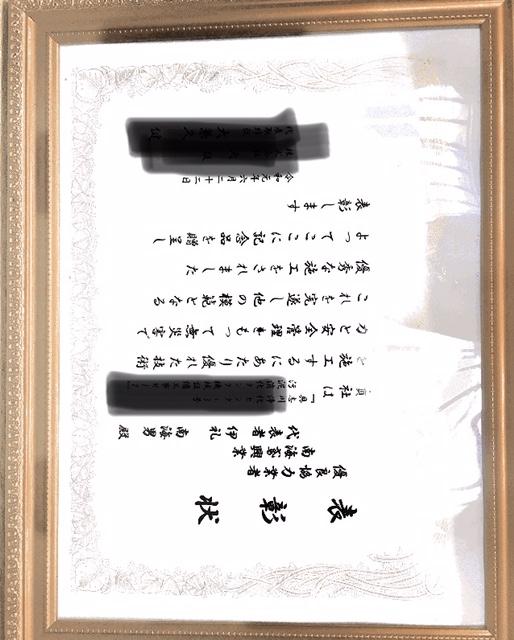 表彰状
優良協力業者
南海鳶興業
代表者 伊礼 南海男 殿
貴社は「具志川浄化
を施工するにあたり優れた技術
力と安全管理をもって無災害で
これを完遂し他の模範となる
優秀な施工をされました
よってここに記念品を贈呈し
表彰します
令和元年六月二十二日